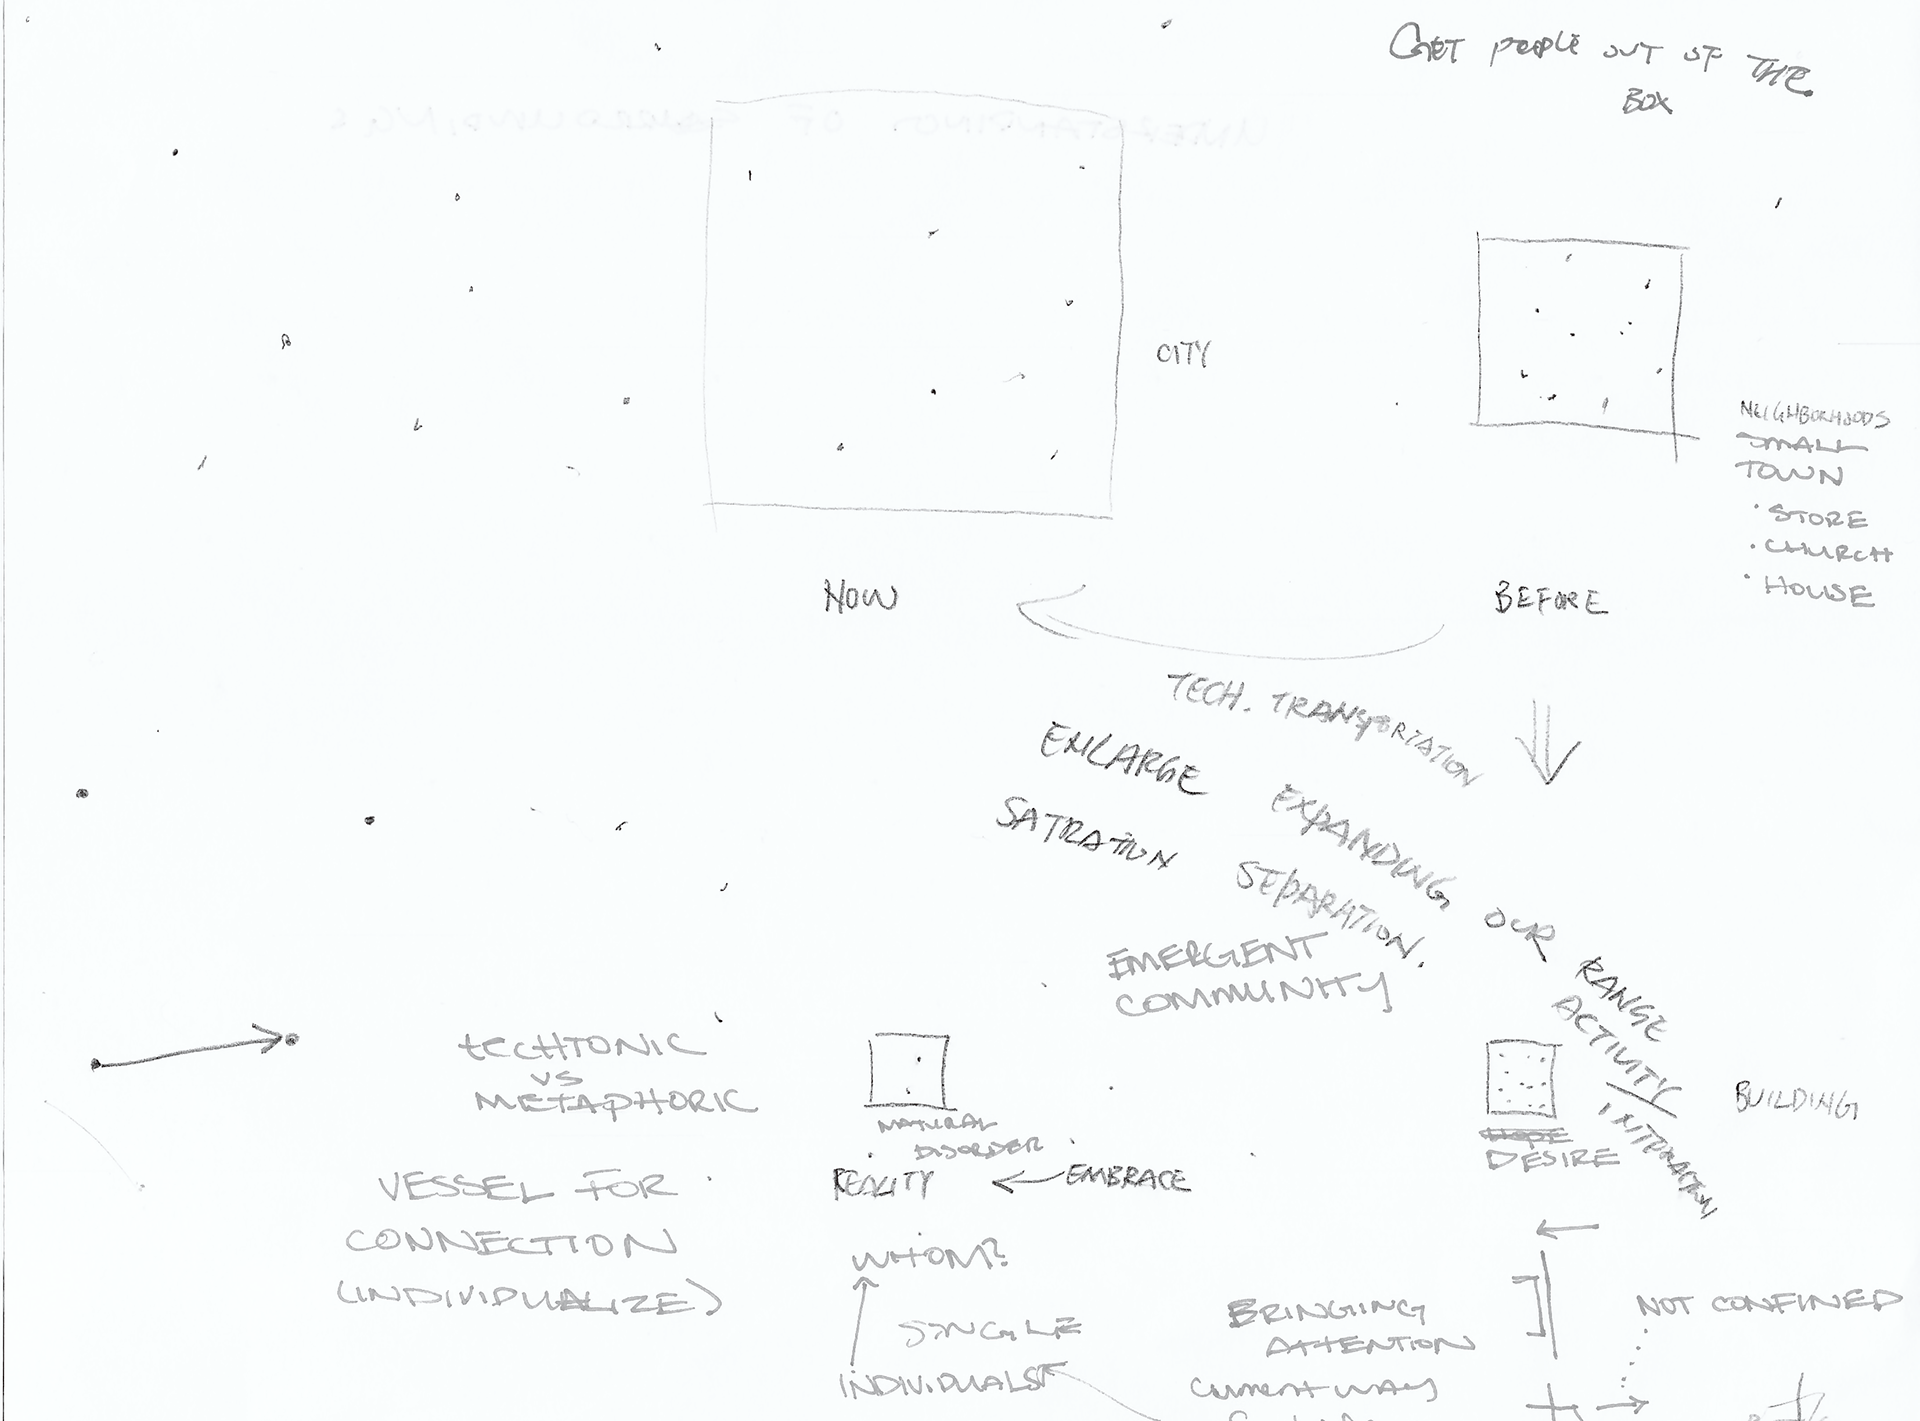 GET PEOPLE OUT OF THE
BOX
UNDERSTANDING OF SURROUNDINGS
CITY
NEIGHBORHOODS
SMALL
TOWN
· STORE
· CHURCH
· HOUSE
NOW
BEFORE
TECH. TRANSPORTATION
ENLARGE EXPANDING OUR RANGE
ACTIVITY/
INTERACTION
SATRATION SEPARATION.
EMERGENT
COMMUNITY
TECHTONIC
VS
METAPHORIC
NATURAL
DISORDER
REALITY
EMBRACE
HOPE
DESIRE
BUILDING
VESSEL FOR
CONNECTION
(INDIVIDUALIZE)
WHOM?
SINGLE
INDIVIDUALS
BRINGIING
ATTENTION
CURRENT WAY
NOT CONFINED